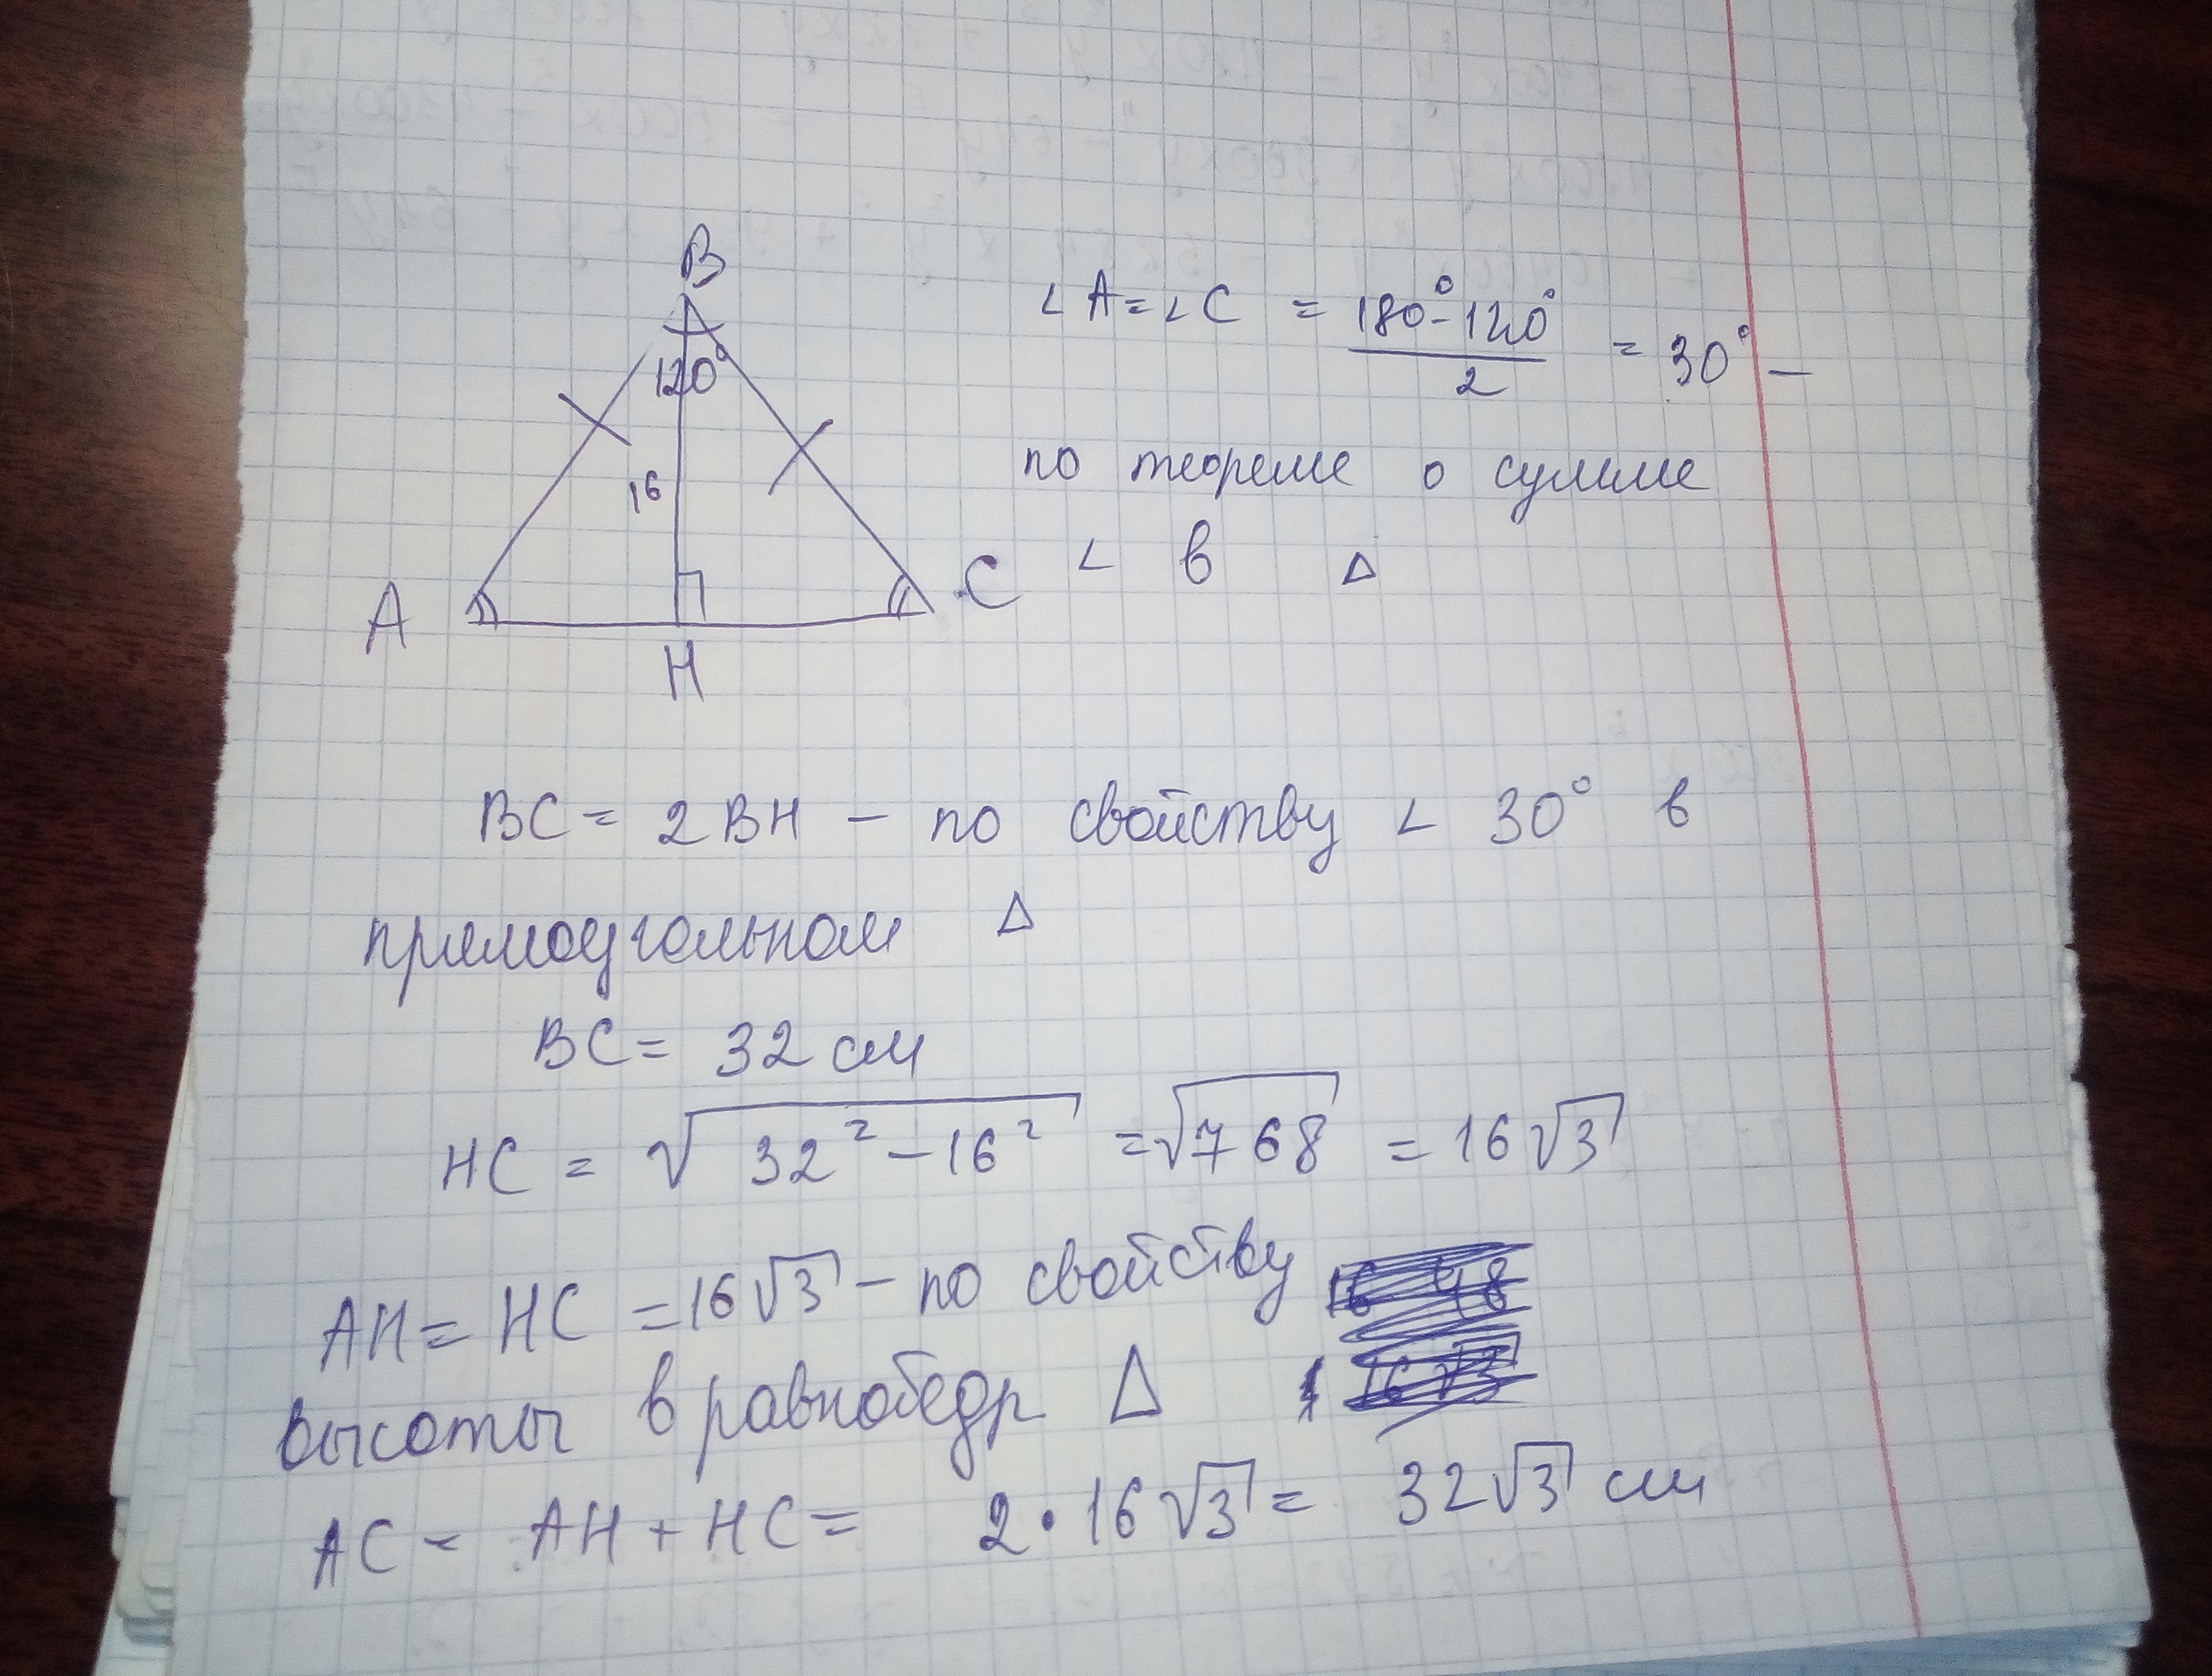 B
120°
16
A
H
C
∠A=∠C = (180°-120°)/2 = 30° —
по теореме о сумме
∠ в △
BC = 2BH — по свойству ∠ 30° в
прямоугольном △
BC = 32 см
HC = √(32² - 16²) = √768 = 16√3
AH = HC = 16√3 — по свойству
высоты в равнобедр △
AC = AH + HC = 2 • 16√3 = 32√3 см